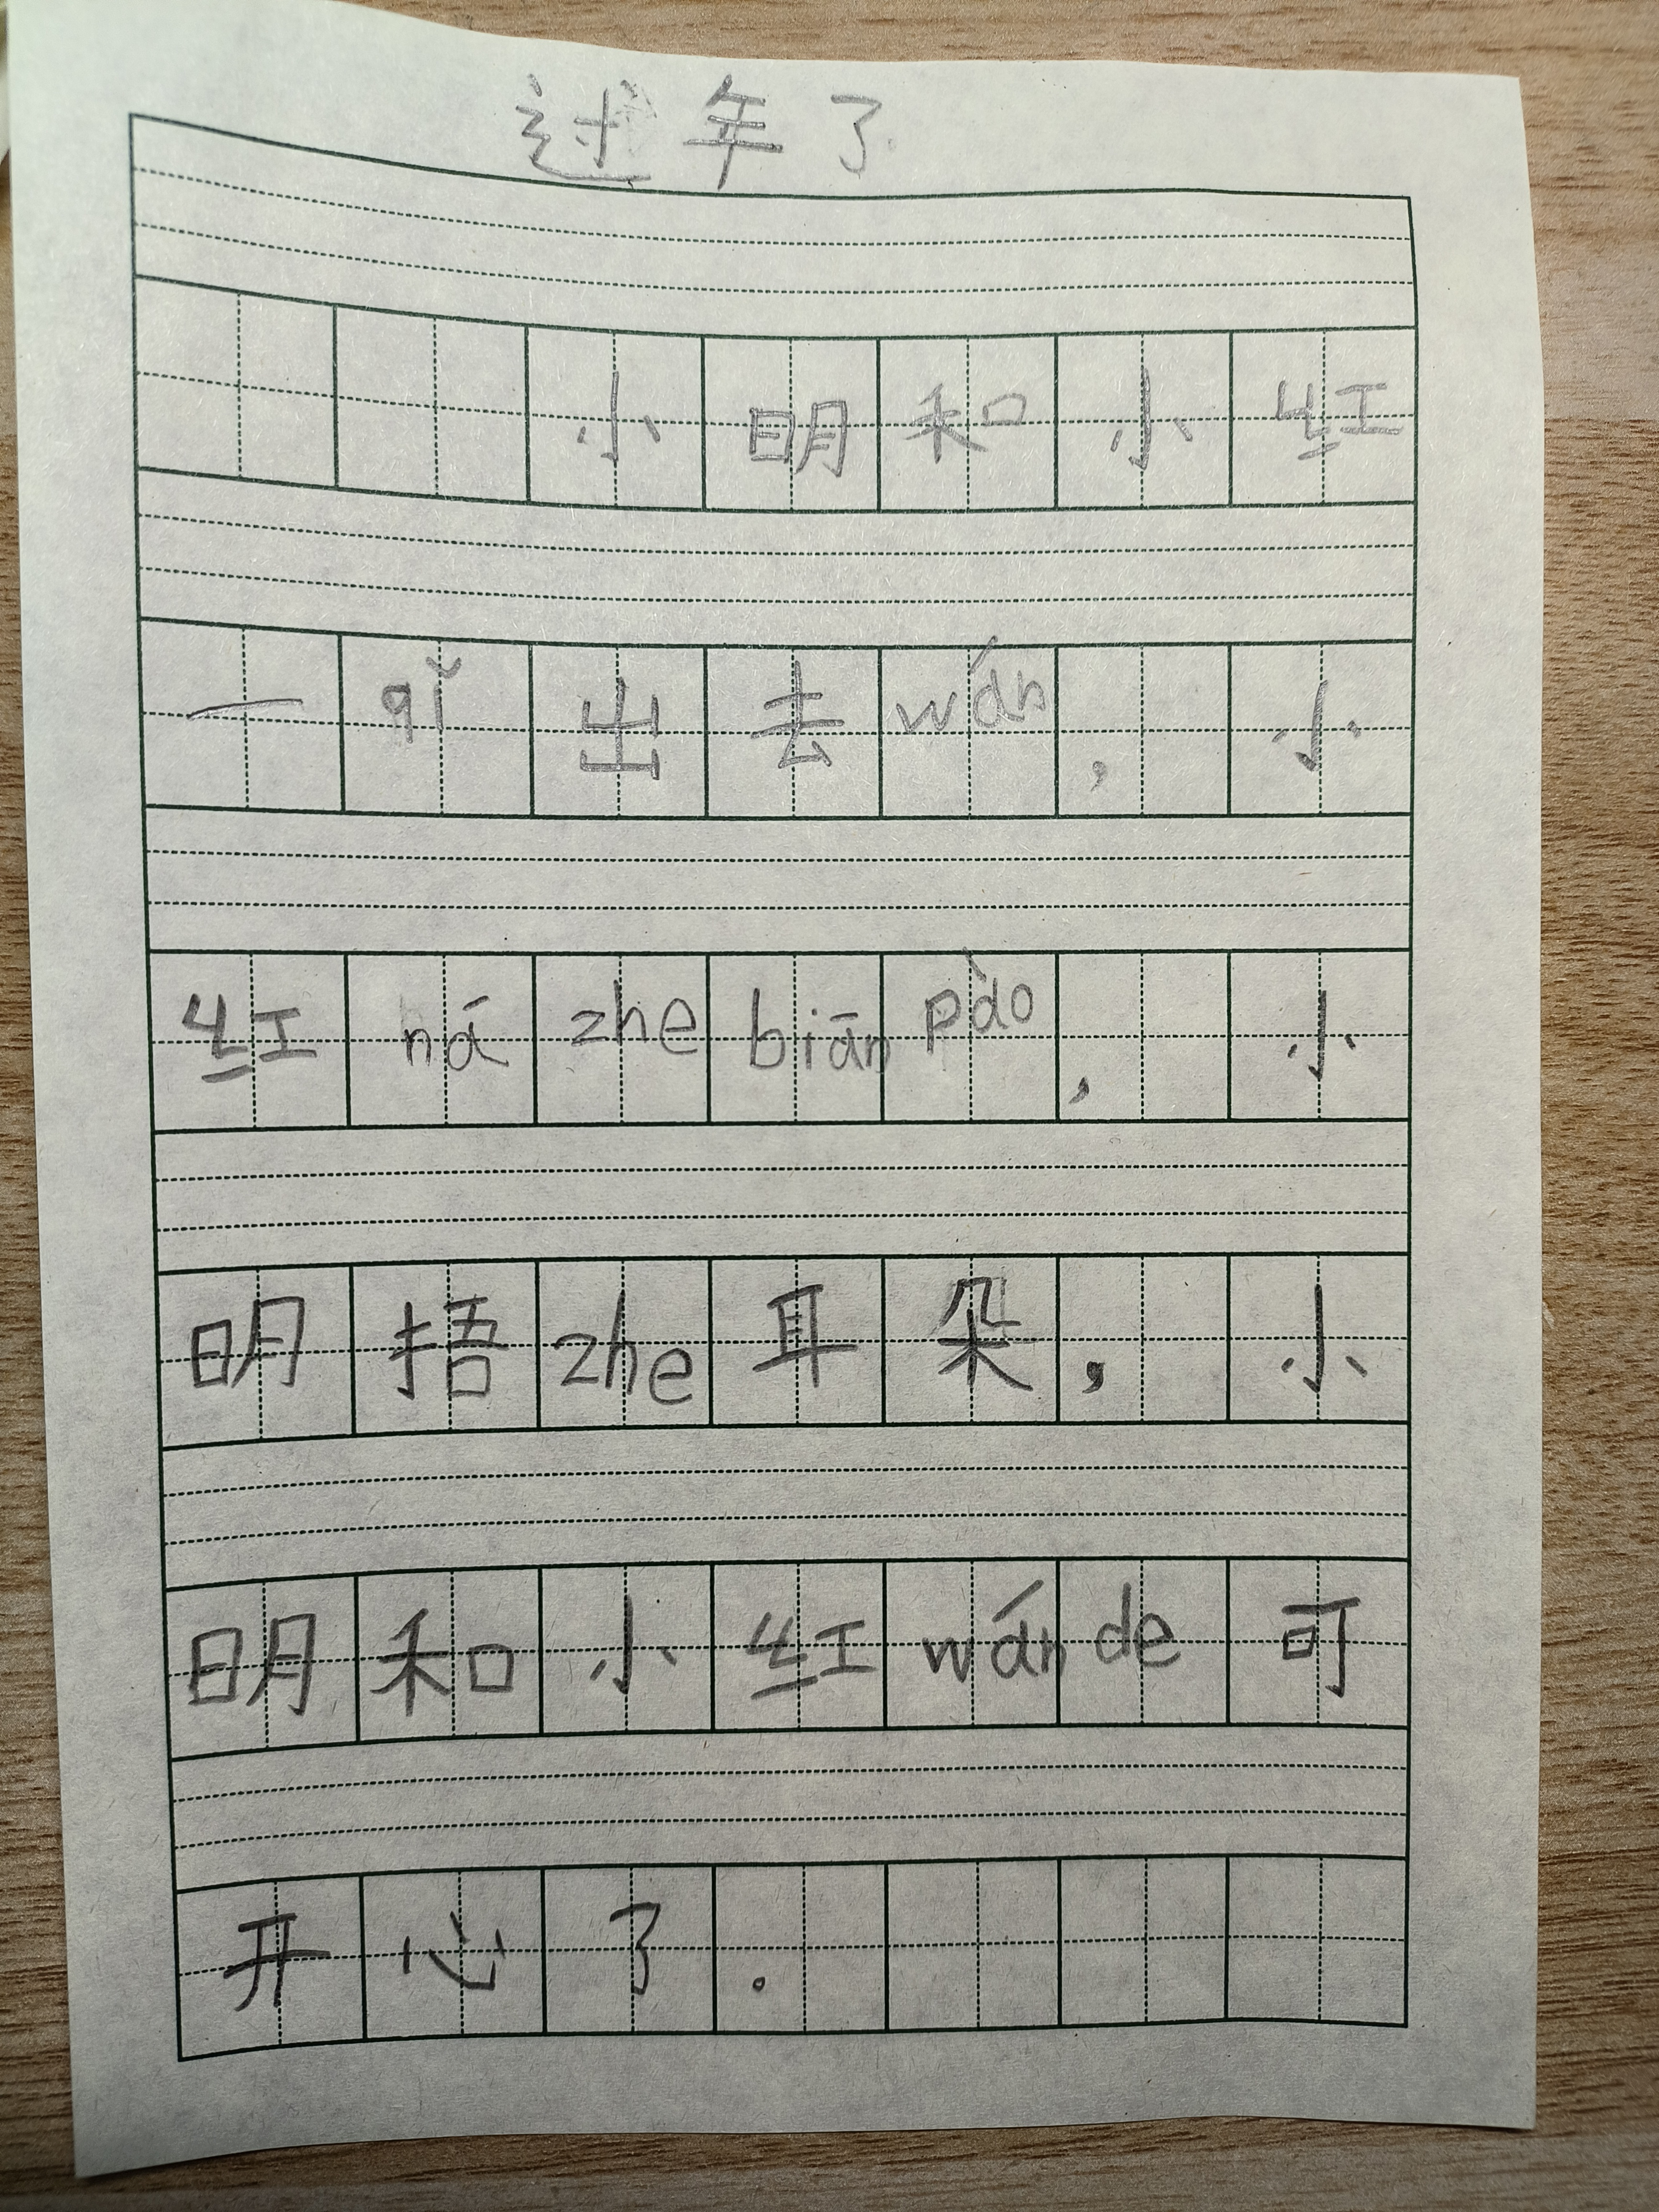 过年了
小明和小红
一qǐ出去wán，小
红názhebiānpào，小
明捂zhe耳朵，小
明和小红wánde可
开心了。